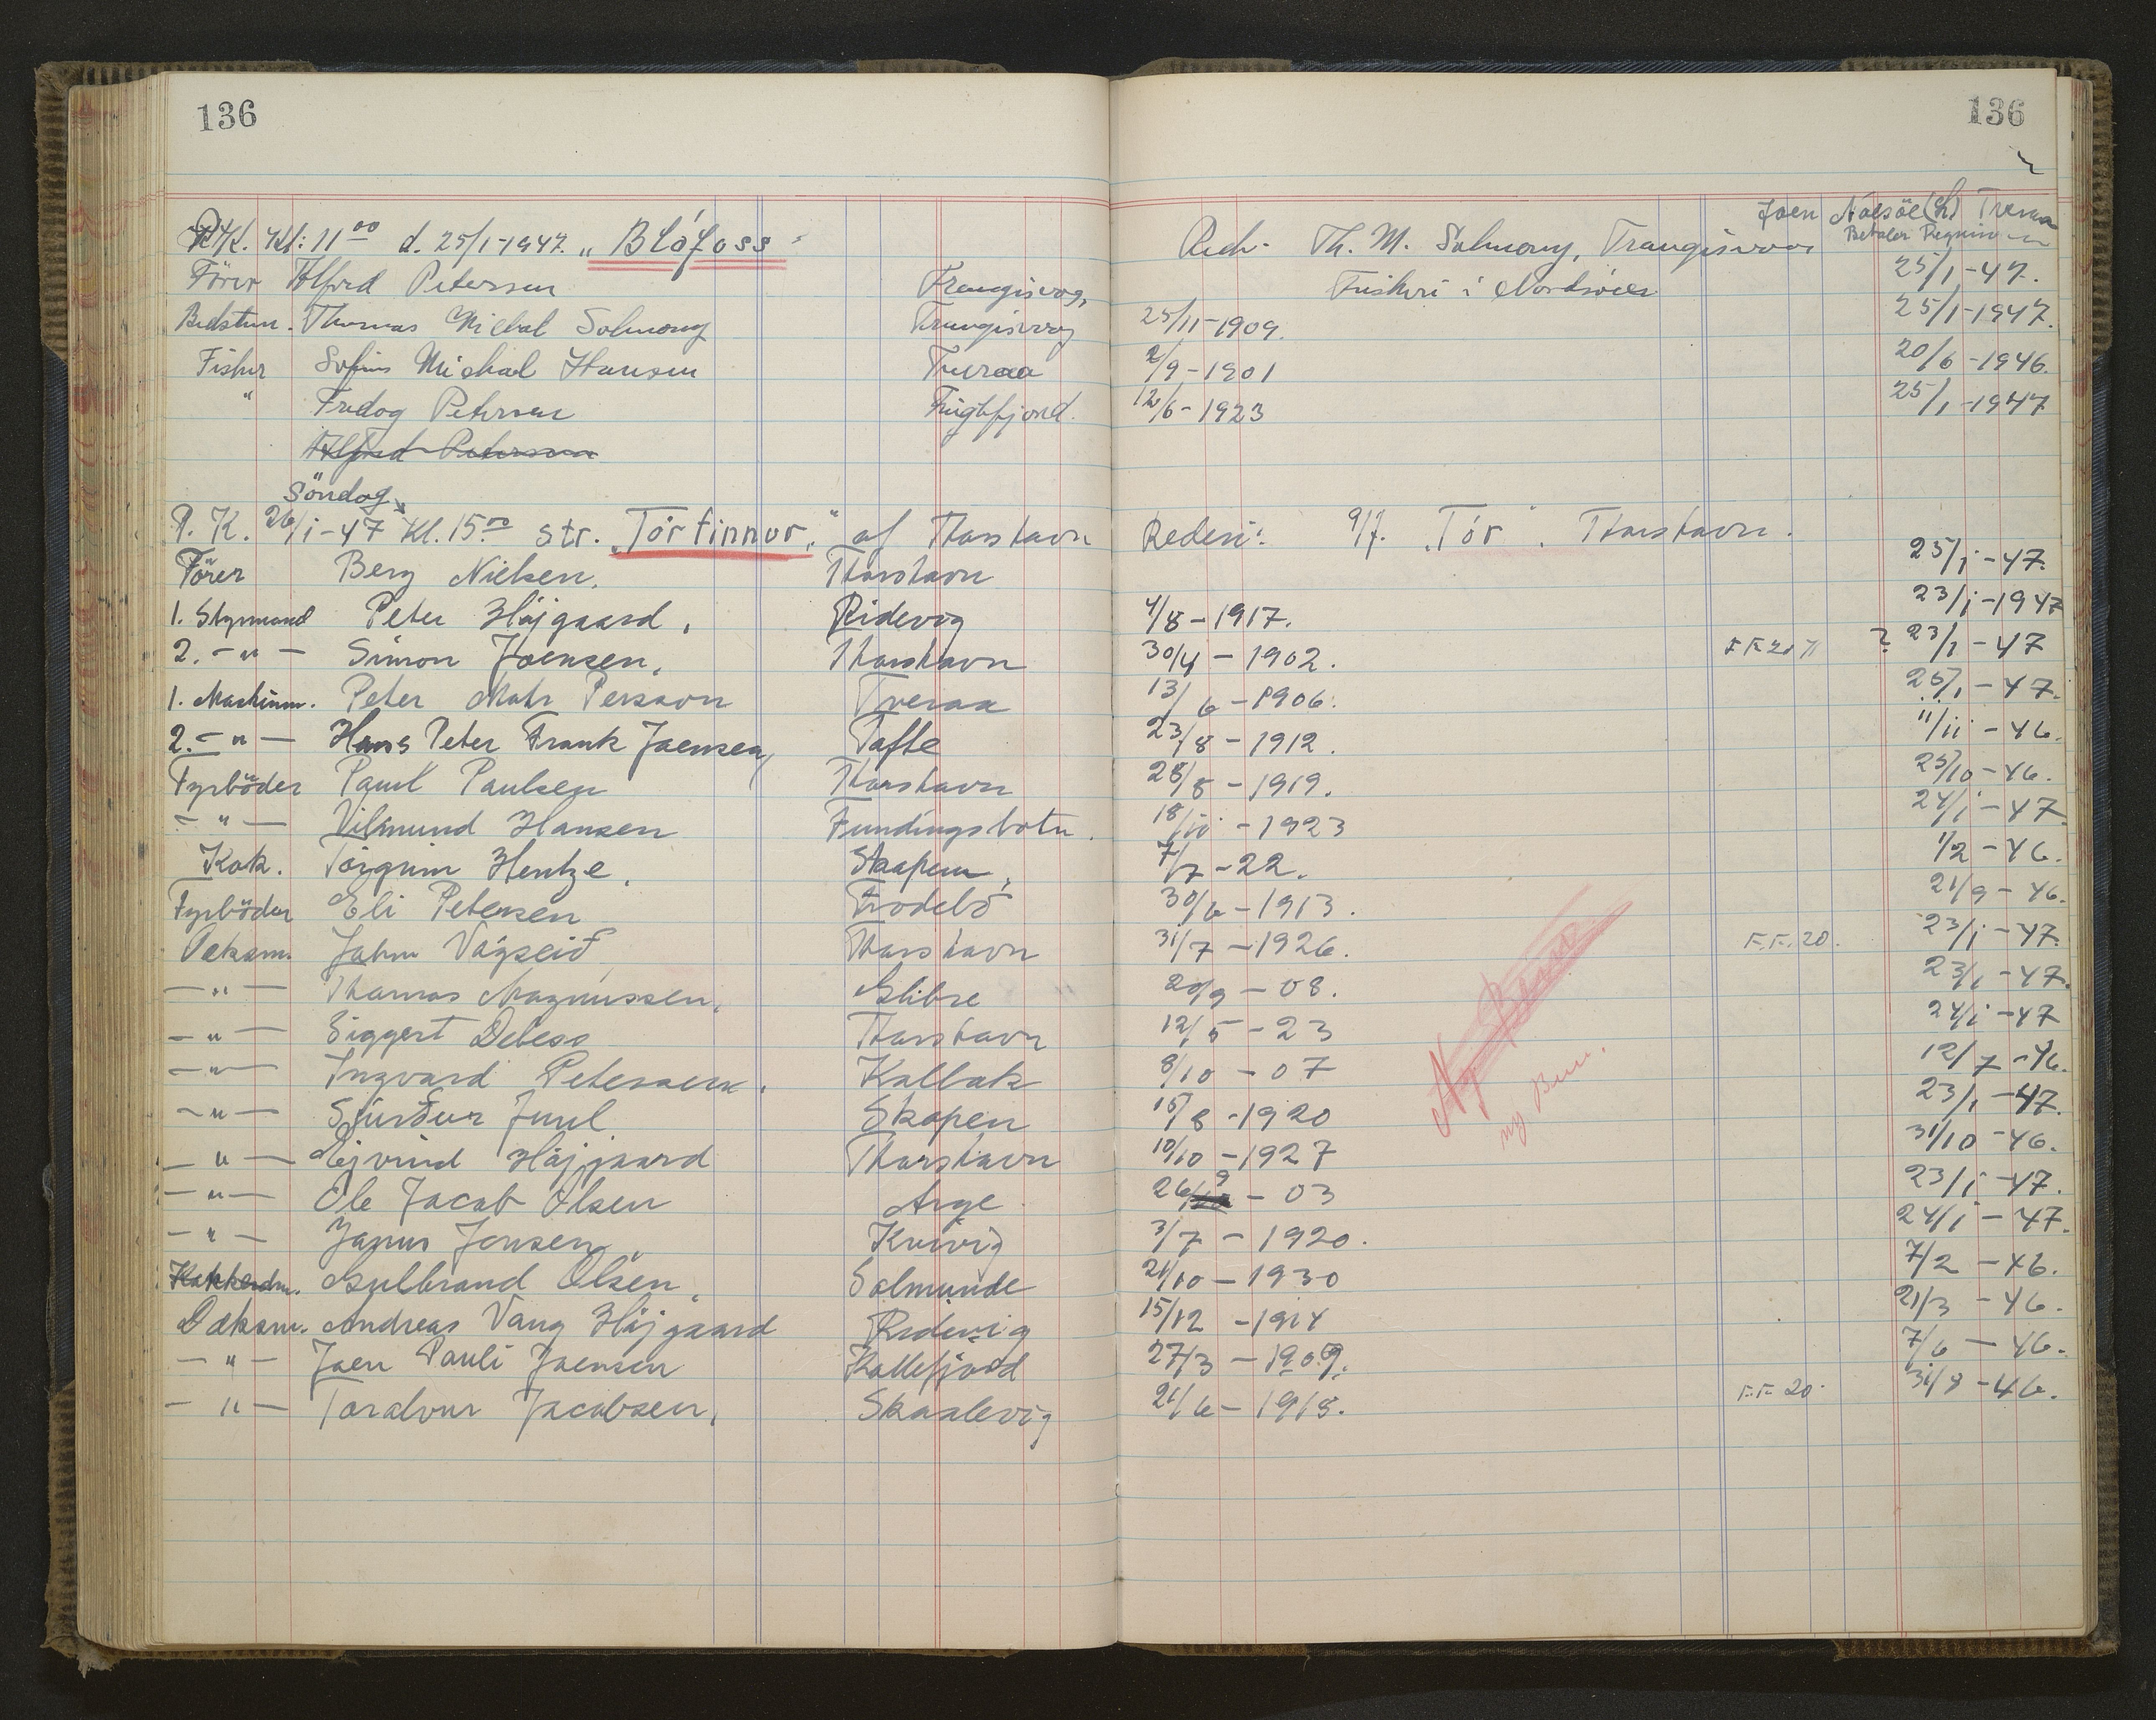 136
136
P.K. Kl: 11 00 d. 25/1-1947. „Blófoss"
Red. Th. M. Solmony, Trangisvaag
Joen Nolsöe (h) Tveraa
Betaler Regning
Förer Alfred Petersen Trangisvog,
Fiskeri i Nordsöen 25/1-47.
Bedstm. Thomas Mikal Solmony Trangisvog 25/11-1909. 25/1-1947.
Fisker Sofus Michal Hansen Tveraa 2/9-1901 20/6-1946.
" Fredog Petersen Fuglefjord. 12/6-1923 25/1-1947
Alfred Petersen
Söndag
P. K. 26/1-47 Kl. 15 00 str. „Tórfinnur" af Thorshavn Rederi: „Tór". Thorshavn.
Förer Berg Nielsen. Thorshavn 25/1-47.
1. Styrmand Peter Höjgaard, Ridevig 4/8-1917. 23/1-1947
2. -"- Simon Joensen, Thorshavn 30/4-1902. ? 23/1-47
1. Maskinm. Peter Mohr Persson Tveraa 13/6-1906. 25/1-47.
2. -"- Hans Peter Frank Joensen, Tofte 23/8-1912. 11/11-46.
Fyrböder Paul Paulsen Thorshavn 28/8-1919. 25/10-46.
-"- Vilmund Hansen Fundingsbotn. 18/11-1923 24/1-47
Kok. Tórgrim Hentze, Skapun, 7/7-22. 1/2-46.
Fyrböder Eli Petersen Frodebö 30/6-1913. 21/9-46.
Dæksm. John Vágseið Thorshavn 31/7-1926. F.F. 20. 23/1-47.
-"- Thomas Magnussen, Glibre 20/9-08. 23/1-47.
-"- Siggert Debess Thorshavn 12/5-23 24/1-47
-"- Ingvard Petersen. Kalbak 8/10-07 12/7-46.
-"- Sjúrður Juul Skopen 15/8-1920 23/1-47.
-"- Ejvind Höjgaard Thorshavn 10/10-1927 31/10-46.
-"- Ole Jacob Olsen Arge. 26/9-03 23/1-47.
-"- Janus Jensen Kvivig 3/7-1920. 24/1-47.
Kokkedm. Gulbrand Olsen, Solmunde 21/10-1930 7/2-46.
Dæksm. Andreas Vang Höjgaard Ridevig 15/12-1914 21/3-46.
-"- Joen Pauli Joensen Kollefjord 27/3-1909. 7/6-46.
-"- Toralvur Jacobsen, Skaalevig 21/6-1918. F.F. 20. 31/8-46.
ny Bem.